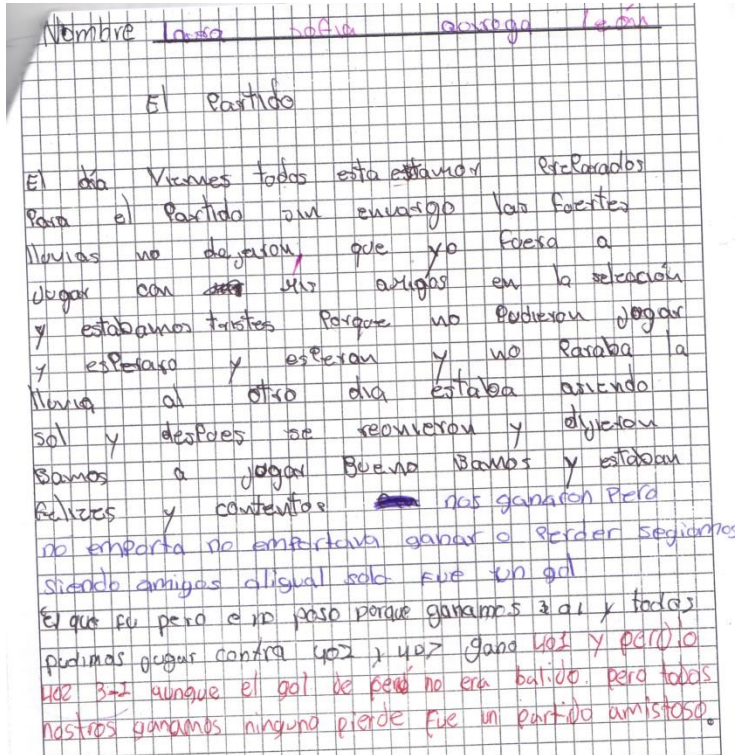 Nombre Laura Sofia León
El Partido
El día Viernes todos esta estamos Preparados
Para el Partido sin envargo las fuertes
lluvias no dejaron que yo fuera a
Jugar con mis amigos en la selección
y estabamos tristes Porque no Pudieron Jogar
y esperaro y esperan y no Paraba la
lluvia al otro dia estaba asiendo
sol y despoes se reonieron y dijieron
Bamos a jogar Bueno Bamos y estaban
felizes y contentos nos ganaron Pero
no emporta no emportava ganar o perder segiamos
siendo amigos aligual solo fue un gol
El que fu pero e no paso porque ganamos 2 al y todos
pudimos gugar contra 402 y 407 gano 401 y perdio
402 3-2 aunque el gol de no era balido. pero todos
nostros ganamos ninguno pierde fue un partido amistoso.